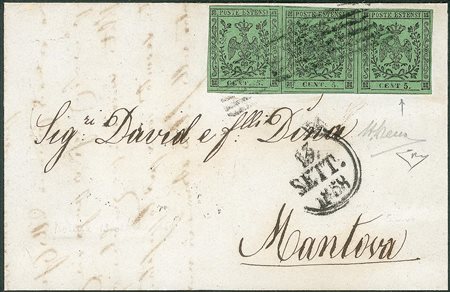 POSTE ESTENSI POSTE ESTENSI POSTE ESTENSI
CENT. 5. CENT. CENT 5.
Sig.ri David e f.lli Dina
13
SETT.
1858
Mantova